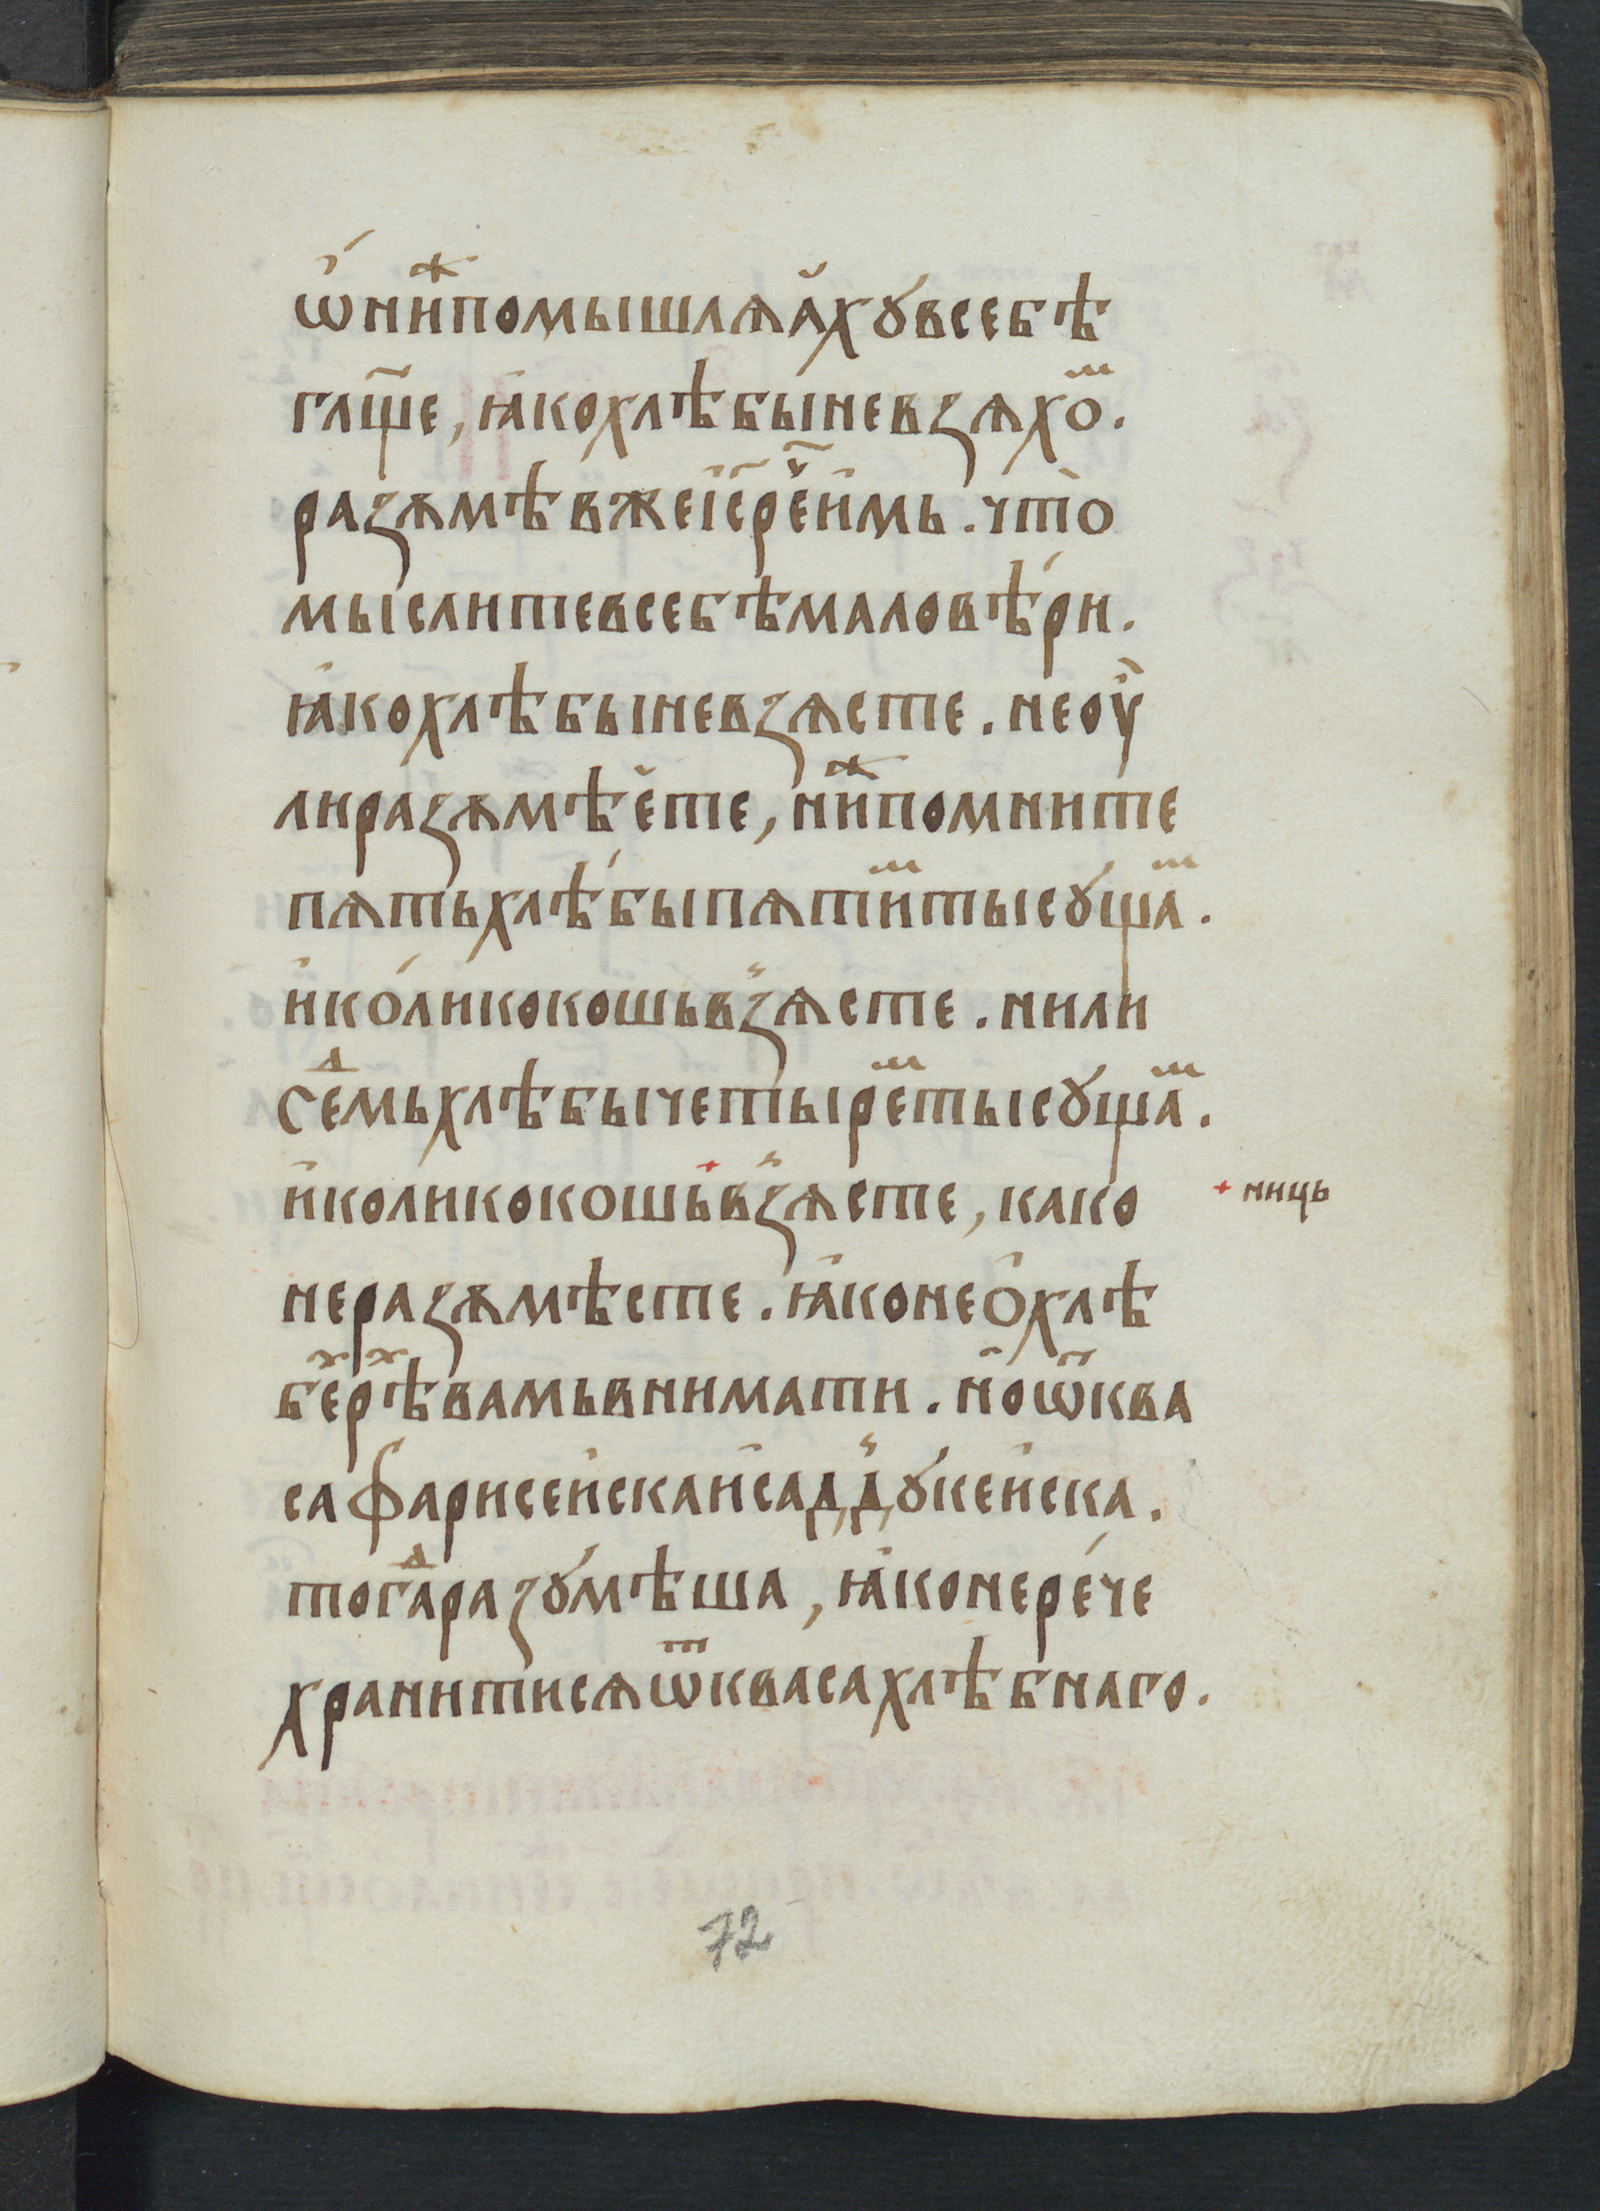 ѡ҆ни́ⷤпомышлѧа҆хꙋвсебѣ
гл҃ще, ꙗ҆кохлѣбы невзѧхоⷨ.
разѫмѣвжеі҆с҃рече҃и҆мь. что̀
мыслитевсебѣмаловѣ́ри.
ꙗ҆кохлѣбыневзѧсте. неоу҆
лиразѫмѣе҆те, ни́ⷤпомните
пѧтьхлѣ́быпѧтиⷨтысꙋщаⷨ.
и҆ко́ликокошьв̾зѧсте. нили
сеⷣмьхлѣбычетыреⷨтысꙋщаⷨ.
и҆коликокошь+в̾зѧсте, како
неразѫмѣсте. ꙗ҆конео҆хлѣ
беⷯрѣⷯвамьвнимати. но̀ѿква
сафарисеи҆скаи҆сад̾дꙋкеи҆ска.
тогаⷣразꙋмѣша, ꙗ҆конере́че
хранитисѧѿквасахлѣбнаго.
+ ниць
72